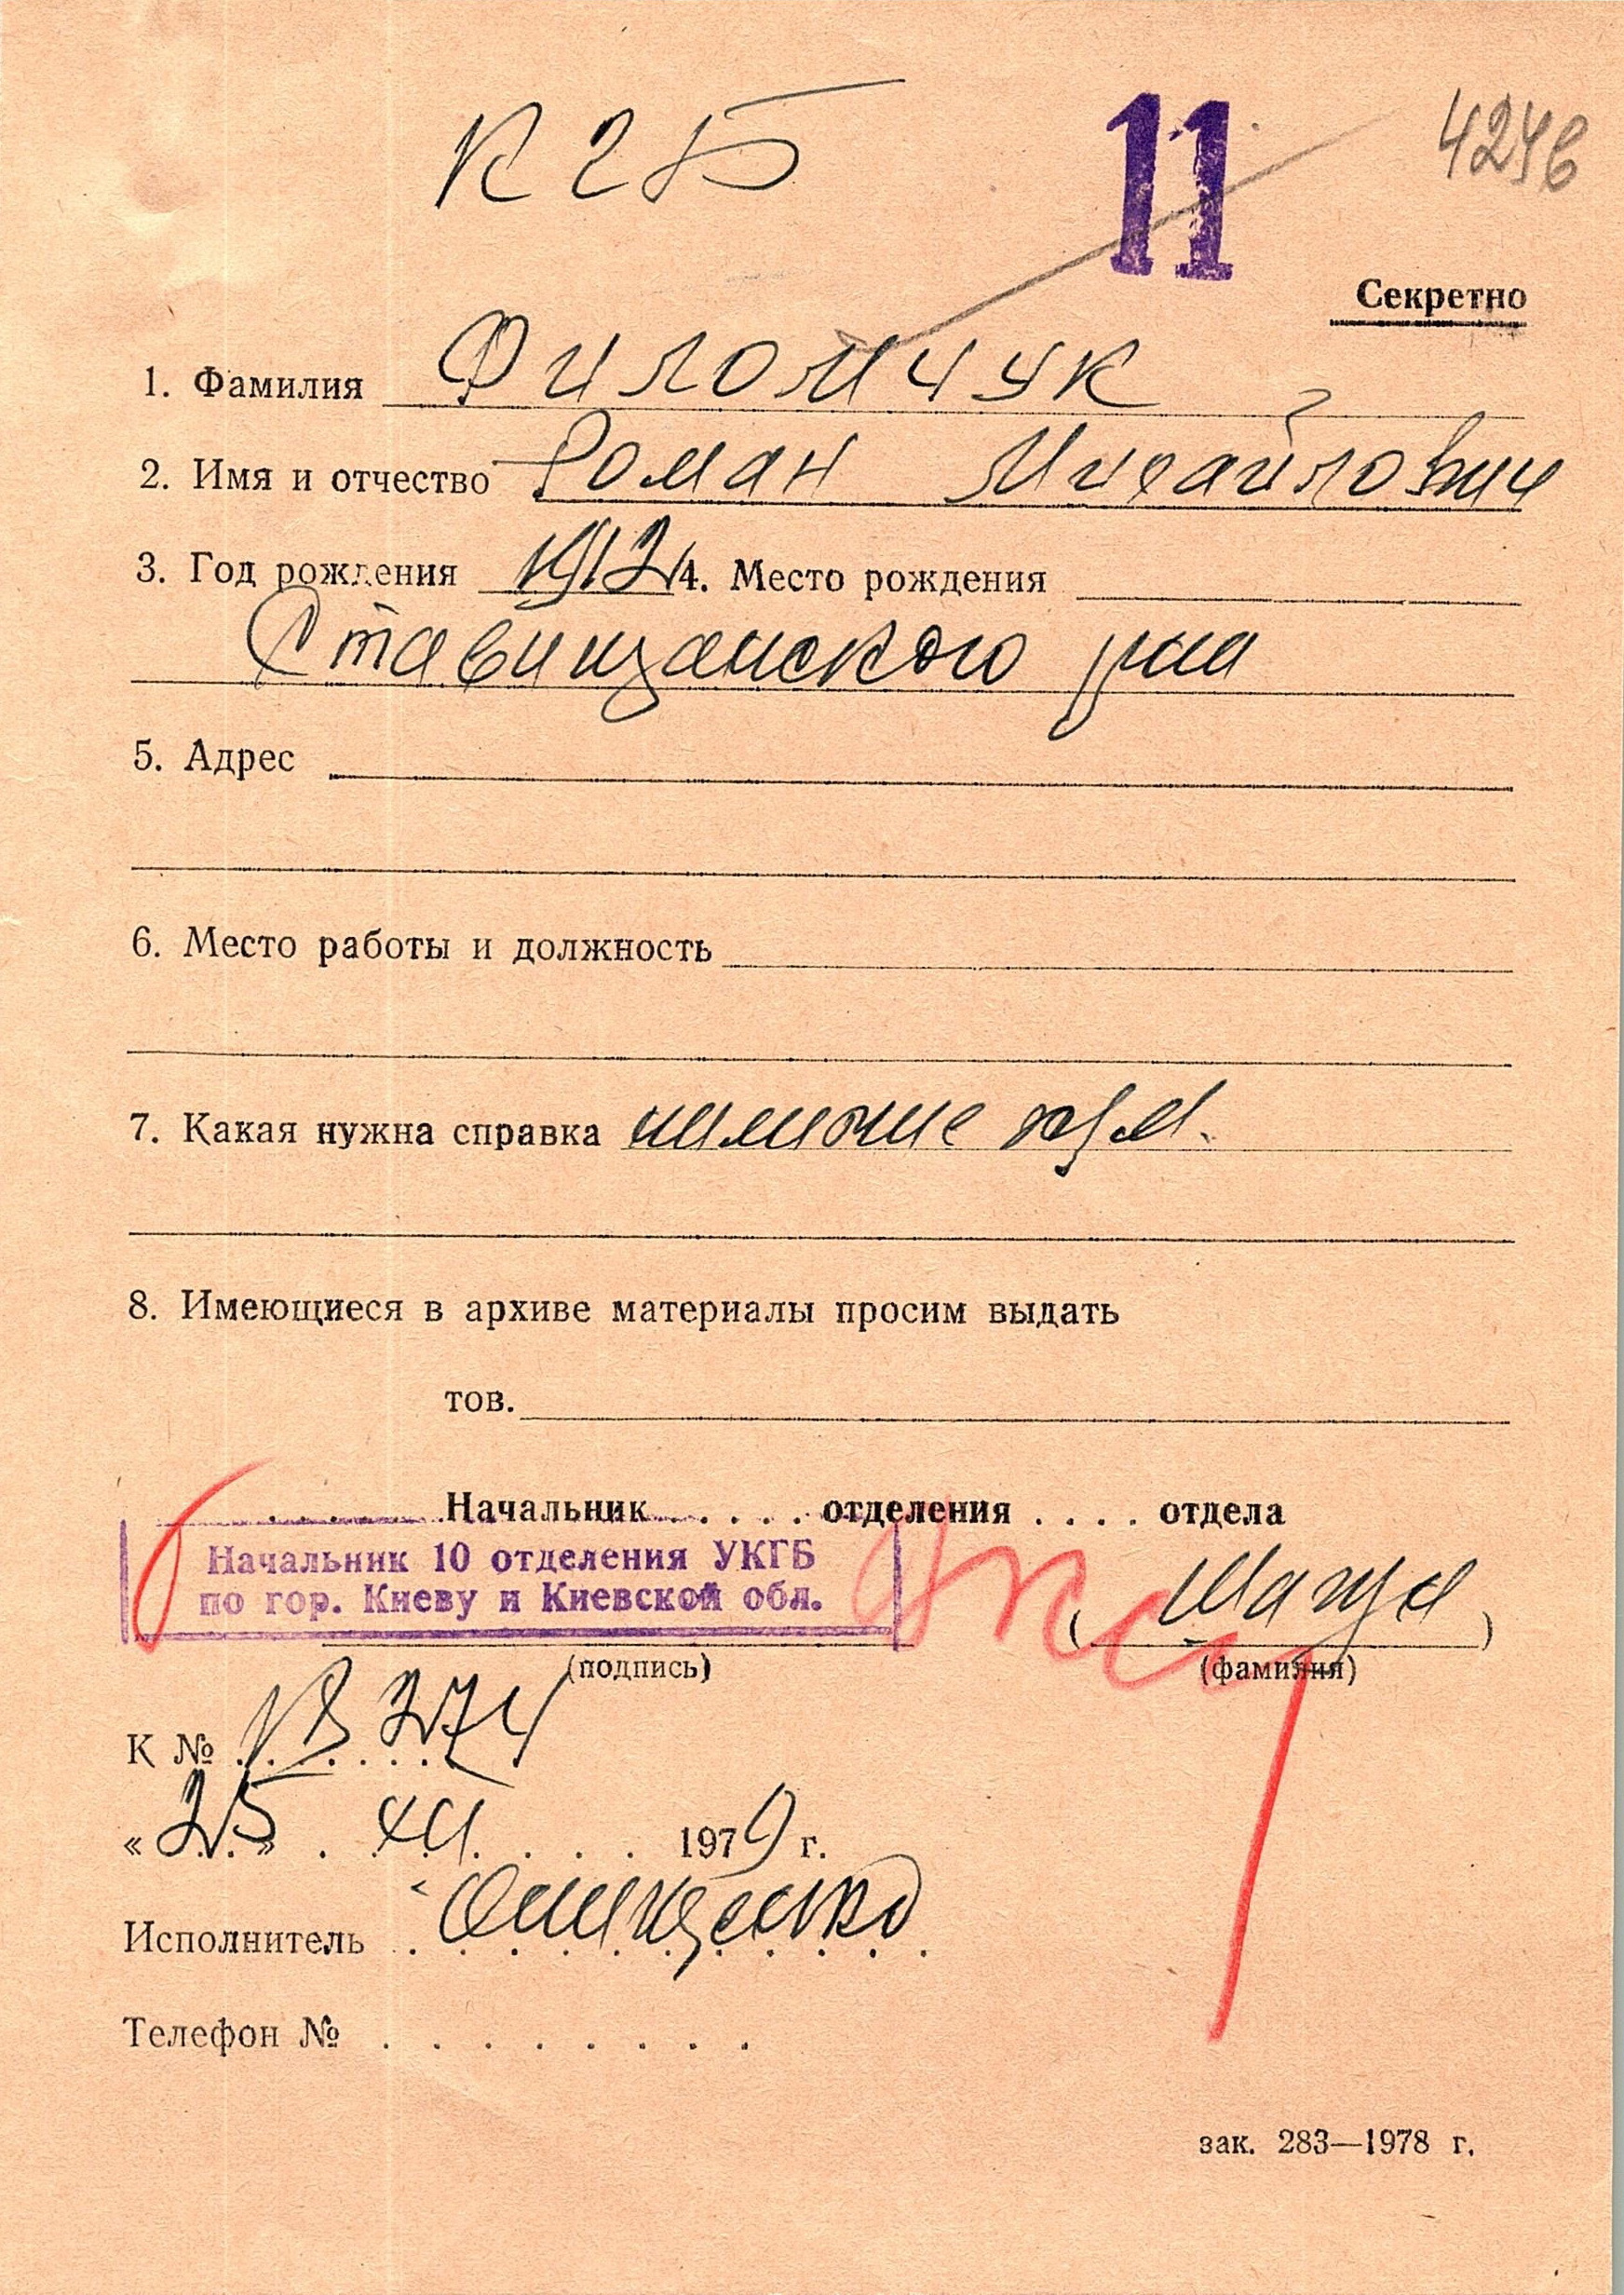 К 2Б
11
424в
Секретно
1. Фамилия Филомчук
2. Имя и отчество Роман Михайлович
3. Год рождения 1912 4. Место рождения
Ставищанского р-на
5. Адрес
6. Место работы и должность
7. Какая нужна справка
8. Имеющиеся в архиве материалы просим выдать
тов.
. . . . . Начальник . . . . . отделения . . . . отдела
Начальник 10 отделения УКГБ
по гор. Киеву и Киевской обл.
(подпись) (фамилия)
К № 3274
« 25 » XII 1979 г.
Исполнитель Онищенко
Телефон № . . . . . . . .
зак. 283—1978 г.